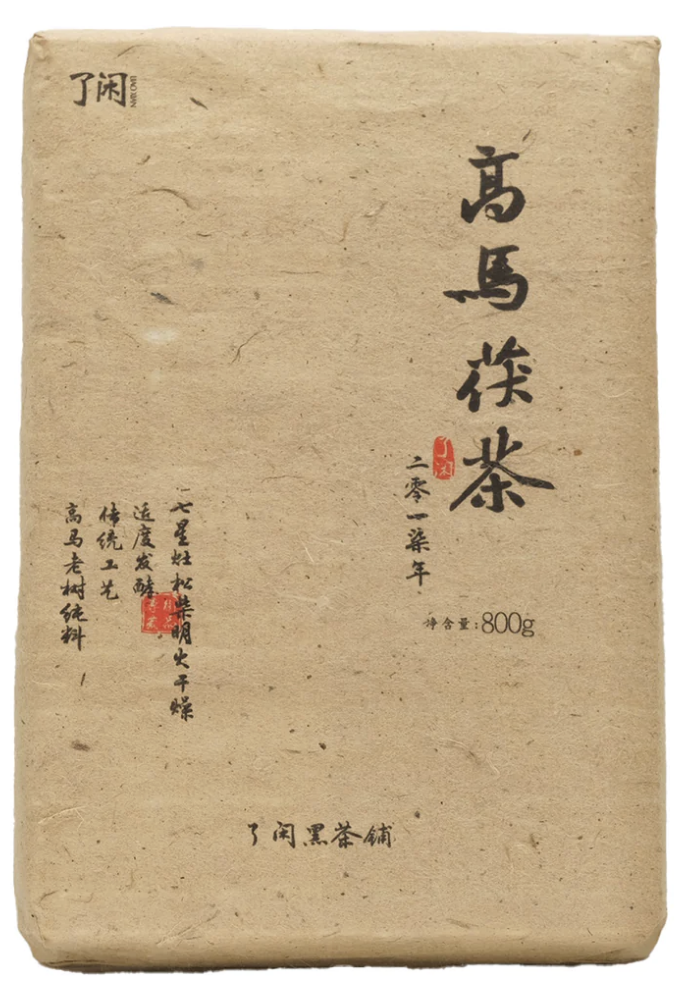 了闲
高馬茯茶
了闲
二零一柒年
净含量:800g
七星灶松柴明火干燥
适度发酵
传统工艺
高马老树纯料
了闲黑茶铺